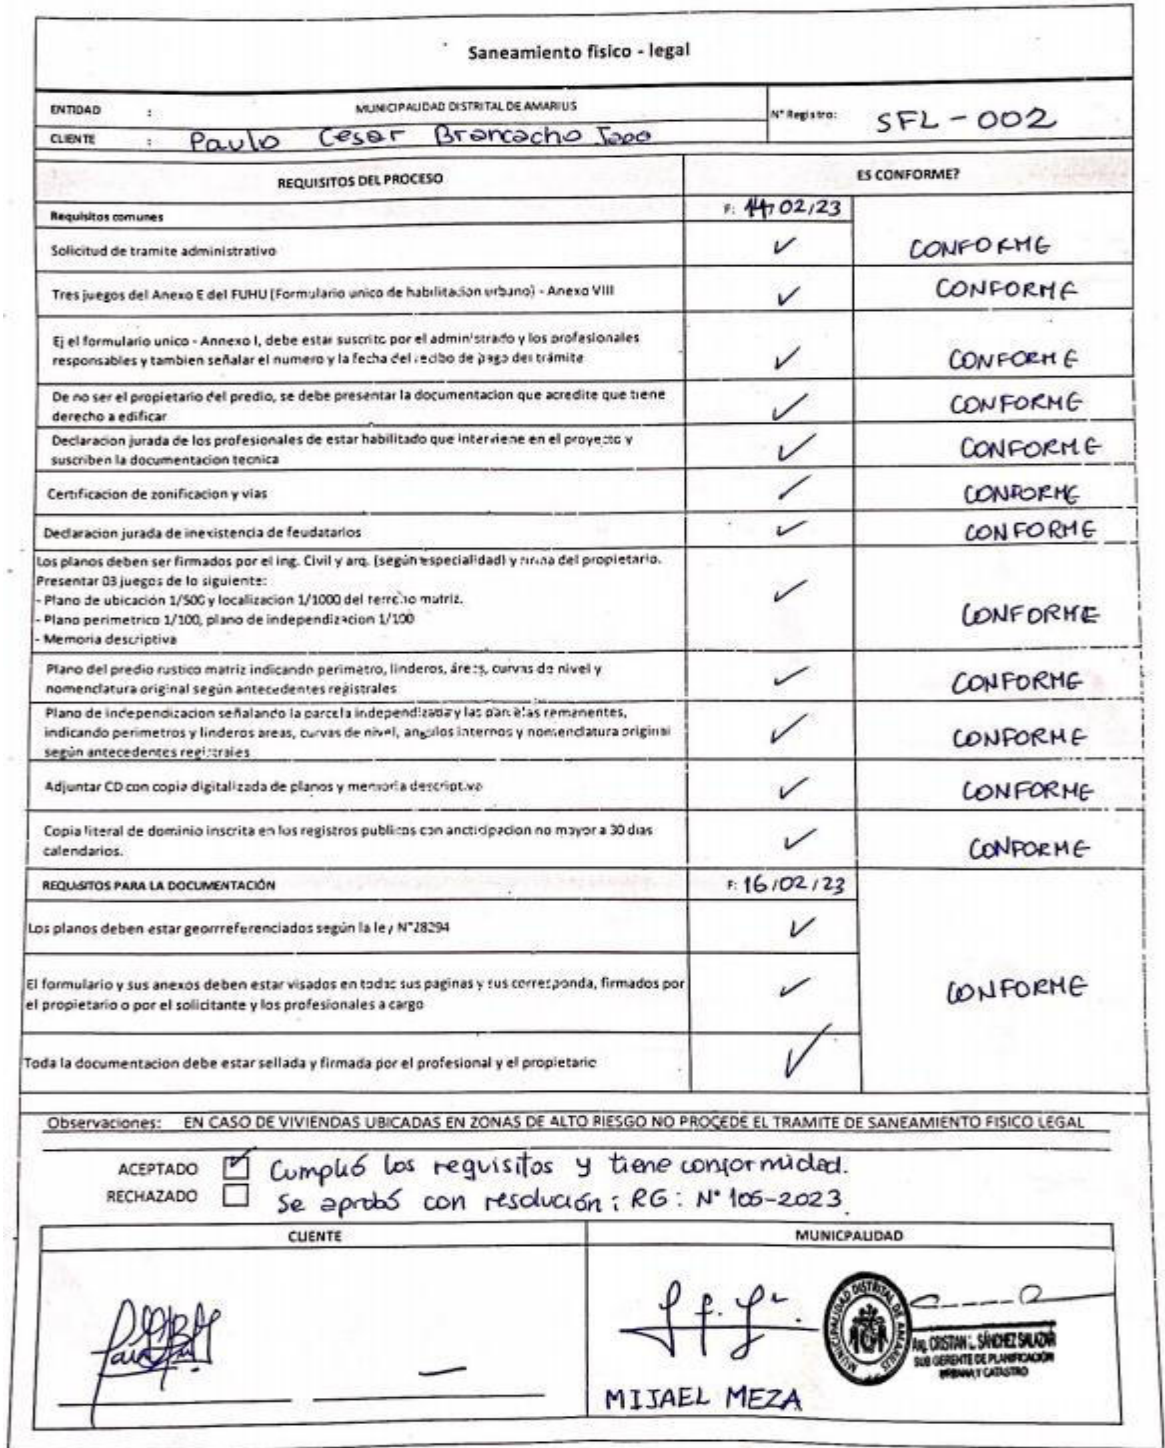 Saneamiento fisico - legal
ENTIDAD : MUNICIPALIDAD DISTRITAL DE AMARILIS
N° Registro: SFL-002
CLIENTE : Paulo Cesar Brancacho
REQUISITOS DEL PROCESO
ES CONFORME?
Requisitos comunes
F: 14/02/23
Solicitud de tramite administrativo ✓ CONFORME
Tres juegos del Anexo E del FUHU (Formulario unico de habilitacion urbano) - Anexo VIII ✓ CONFORME
Ej el formulario unico - Annexo I, debe estar suscrito por el administrado y los profesionales
responsables y tambien señalar el numero y la fecha del recibo de pago del trámite ✓ CONFORME
De no ser el propietario del predio, se debe presentar la documentacion que acredite que tiene
derecho a edificar ✓ CONFORME
Declaracion jurada de los profesionales de estar habilitado que interviene en el proyecto y
suscriben la documentacion tecnica ✓ CONFORME
Certificacion de zonificacion y vias ✓ CONFORME
Declaracion jurada de inexistencia de feudatarios ✓ CONFORME
Los planos deben ser firmados por el ing. Civil y arq. (según especialidad) y firma del propietario.
Presentar 03 juegos de lo siguiente:
- Plano de ubicación 1/500 y localizacion 1/1000 del terreno matriz.
- Plano perimetrico 1/100, plano de independizacion 1/100
- Memoria descriptiva
✓ CONFORME
Plano del predio rustico matriz indicando perimetro, linderos, áreas, curvas de nivel y
nomenclatura original según antecedentes registrales ✓ CONFORME
Plano de independizacion señalando la parcela independizada y las parcelas remanentes,
indicando perimetros y linderos areas, curvas de nivel, angulos internos y nomenclatura original
según antecedentes registrales ✓ CONFORME
Adjuntar CD con copia digitalizada de planos y memoria descriptiva ✓ CONFORME
Copia literal de dominio inscrita en los registros publicos con ancticipacion no mayor a 30 dias
calendarios. ✓ CONFORME
REQUISITOS PARA LA DOCUMENTACIÓN
F: 16/02/23
Los planos deben estar georrreferenciados según la ley N°28294 ✓
El formulario y sus anexos deben estar visados en todas sus paginas y sus corresponda, firmados por
el propietario o por el solicitante y los profesionales a cargo ✓ CONFORME
Toda la documentacion debe estar sellada y firmada por el profesional y el propietario ✓
Observaciones: EN CASO DE VIVIENDAS UBICADAS EN ZONAS DE ALTO RIESGO NO PROCEDE EL TRAMITE DE SANEAMIENTO FISICO LEGAL
ACEPTADO ✓ Cumplió los requisitos y tiene conformidad.
RECHAZADO Se aprobó con resolución: RG: N° 105-2023.
CLIENTE
MUNICPALIDAD
MUNICIPALIDAD DISTRITAL DE AMARILIS
Arq. CRISTIAN L. SÁNCHEZ SALAZAR
SUB GERENTE DE PLANIFICACIÓN
URBANA Y CATASTRO
MIJAEL MEZA